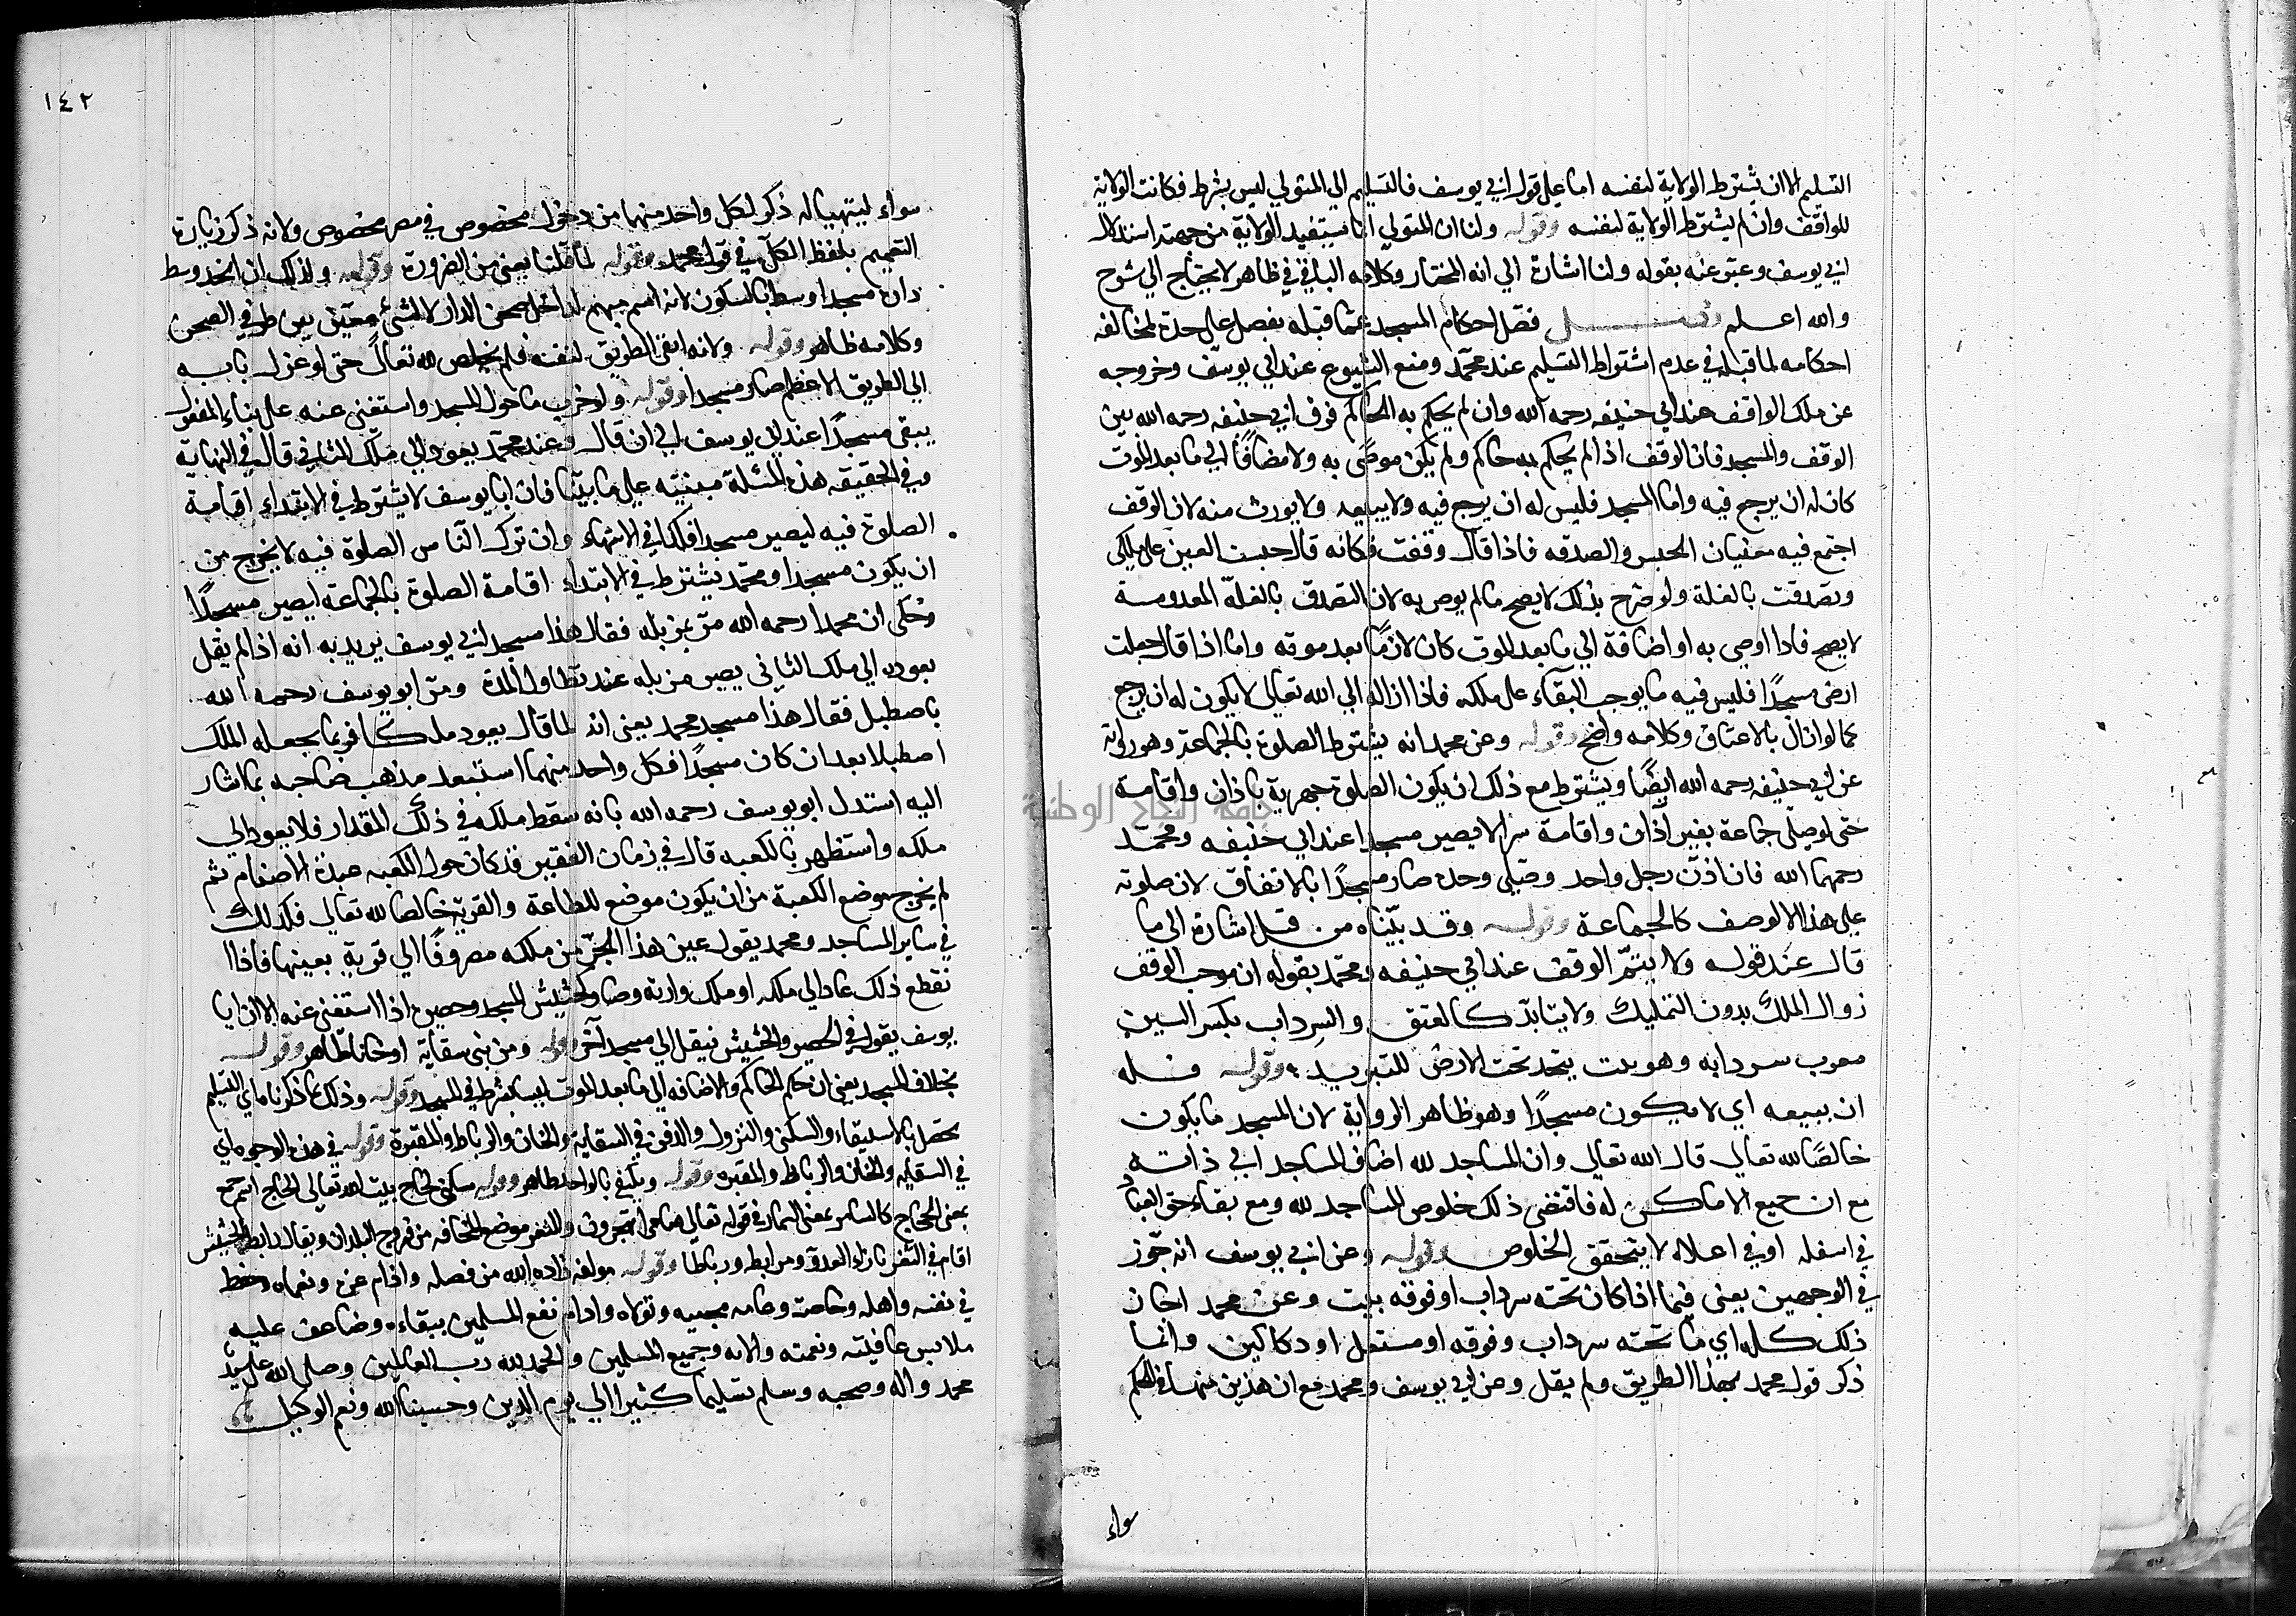 التسليم الا ان يشترط الولاية لنفسه اما على قول ابي يوسف فالتسليم الي المتولي ليس بشرط فكانت الولاية
للواقف وان لم يشترط الولاية لنفسه وقوله ولنا ان المتولي انما يستفيد الولاية من جهته استدلال
ابي يوسف وعبر عنه بقوله ولنا اشارة الي انه المختار وكلامه الباقي في ظاهر لا يحتاج الي شرح
والله اعلم فصل فصل احكام المسجد عما قبله بفصل على حدة لمخالفه
احكامه لما قبله في عدم اشتراط التسليم عند محمد ومنع الشيوع عند ابي يوسف وخروجه
عن ملك الواقف عند ابي حنيفه رحمه الله وان لم يحكم به الحاكم فرق ابي حنيفه رحمه الله بين
الوقف والمسجد فان الوقف اذا لم يحكم به حاكم ولم يكن موصى به ولا مضافًا الي ما بعد الموت
كان له ان يرجع فيه واما المسجد فليس له ان يرجع فيه ولا يبيعه ولا يورث منه لان الوقف
اجتمع فيه معنيان الحبس والصدقه فاذا قال وقفت فكانه قال حبست العين على ملكي
وتصدقت بالغلة ولو صرح بذلك لا يصح ما لم يوص به لان التصدق بالغلة المعدومة
لا يصح فاذا اوصي به او اضافة الي ما بعد الموت كان لازمًا بعد موته واما اذا قال جعلت
ارضى مسجدًا فليس فيه ما يوجب البقاء على ملكه فاذا ازاله الي الله تعالي لا يكون له ان يرجع
كما لو ازال بالاعتاق وكلامه واضح وقوله وعن محمد انه يشترط الصلوة بالجماعة وهو رواية
عن ابي حنيفه رحمه الله ايضًا ويشترط مع ذلك ان يكون الصلوة جهرية باذان واقامة
حتى لو صلى جماعة بغير اذان واقامة سرا لا يصير مسجدا عند ابي حنيفه ومحمد
رحمهما الله فان اذن رجل واحد وصلى وحده صار مسجدًا بالاتفاق لان صلوته
على هذا الا لوصف كالجماعة وقوله وقد بيّناه من قبل اشارة الى ما
قال عند قوله ولا يتمّ الوقف عند ابي حنيفه ومحمد بقوله ان موجب الوقف
زوال الملك بدون التمليك ولا يتابد كالعتق والسِرداب بكسر السين
معرب سردابه وهو بيت يتخذ تحت الارض للتبريد وقوله فله
ان يبيعه اي لا يكون مسجدًا وهو ظاهر الرواية لان المسجد ما يكون
خالصًا لله تعالي قال الله تعالي وان المساجد لله اضاف المساجد الي ذاته
مع ان جميع الاماكن له فاقتضى ذلك خلوص المساجد لله ومع بقاء حق العباد
في اسفله او في اعلاه لا يتحقق الخلوص وقوله وعن ابي يوسف انه جوّز
في الوجهين يعني فيما اذا كان تحته سرداب او فوقه بيت وعن محمد اجاز
ذلك كله اي ما تحته سرداب وفوقه او مستغل او دكاكين وانما
ذكر قول محمد بهذا الطريق ولم يقل وعن ابي يوسف ومحمد مع ان هذين منهما في الحكم
سواء
١٤٢
سواء ليتهيا له ذكر لكل واحد منهما من دخول مخصوص في مصر مخصوص ولانه ذكر زيادة
التعميم بلفظ الكل في قول محمد وقوله لما قلنا يعني من الضرورة وقوله وكذلك ان اتخذ وسط
داره مسجدا وسط بالسكون لانه اسم مبهم لداخل صحن الدار لا لشئ معين بين طرفي الصحن
وكلامه ظاهر وقوله ولانه ابقى الطريق لنفسه فلم يخلص لله تعالى حتى لو عزل بابه
الي الطريق الاعظم صار مسجدا وقوله ولو خرب ما حول المسجد واستغنى عنه على بناء المفعول
يبقى مسجدًا عند ابي يوسف الي ان قال وعند محمد يعود الي ملك الثاني قال في النهاية
وفي الحقيقه هذه المسئلة مبنيّه على ما بيّنا فان ابا يوسف لا يشترط في الابتداء اقامة
الصلوة فيه ليصير مسجدا فكذا في الانتهاء وان ترك الناس الصلوة فيه لا يخرج من
ان يكون مسجدا ومحمد يشترط في الابتداء اقامة الصلوة بالجماعة ليصير مسجدًا
وحُكى ان محمدا رحمه الله مرّ بمزبلة فقال هذا مسجد ابي يوسف يريد به انه اذا لم يقل
بعوده الي ملك الثاني يصير مزبله عند تطاول المدة ومرّ ابو يوسف رحمه الله
باصطبل فقال هذا مسجد محمد يعني انه لما قال يعود ملكا فربما يجعله الملك
اصطبلا بعد ان كان مسجدًا فكل واحد منهما استبعد مذهب صاحبه بما اشار
اليه استدل ابو يوسف رحمه الله بانه سقط ملكه في ذلك المقدار فلا يعود الي
ملكه واستظهر بالكعبه قال في زمان الفقير قد كان حول الكعبه عبدة الاصنام ثم
لم يخرج موضع الكعبة من ان يكون موضع للطاعة والقربة خالصا لله تعالي فكذلك
في ساير المساجد ومحمد يقول عين هذا الجزء من ملكه مصروفًا الي قربة بعينها فاذا ا
نقطع ذلك عاد الي ملكه او ملك وارثه وصار كحشيش المسجد وحصيره اذا استغنى عنه الا ان ابا
يوسف يقول في الحصير والحشيش ينقل الي مسجد آخر وقوله ومن بنى سقاية او خانا ظاهر وقوله
بخلاف المسجد يعني ان حكم الحاكم والاضافه الي ما بعد الموت ليس بشرط في المسجد وقوله وذلك بما ذكرناه اي التسليم
يحصل بالاستقاء والسكنى والنزول والدفن في السقاية والخان والرباط والمقبرة وقوله في هذه الوجوه اي
في السقايه والخان والرباط والمقبره وقوله ويكتفي بالواحد ظاهر وقوله سكنى لحاج بيت الله تعالي الحاج اسم جمع
بمعنى الحجاج كالسامر بمعنى السمار في قوله تعالي سامرا تهجرون والثغر موضع المخافه من فروج البلدان ويقال رابط الجيش
اقام في الثغر بازاء العدو ومرابط ورباطا وقوله مولفه زاده الله من فضله وادام عزه ونعماه وحفظ
في نفسه واهله وخاصته وعامه محبيه وتولاه وادام نفع المسلمين ببقاءه وضاعف عليه
ملابس عافيته ونعمته والائه وجميع المسلمين والحمد لله رب العالمين وصلى الله على سيد
محمد واله وصحبه وسلم تسليما كثيرا الي يوم الدين وحسبنا الله ونعم الوكيل
جامعة النجاح الوطنية